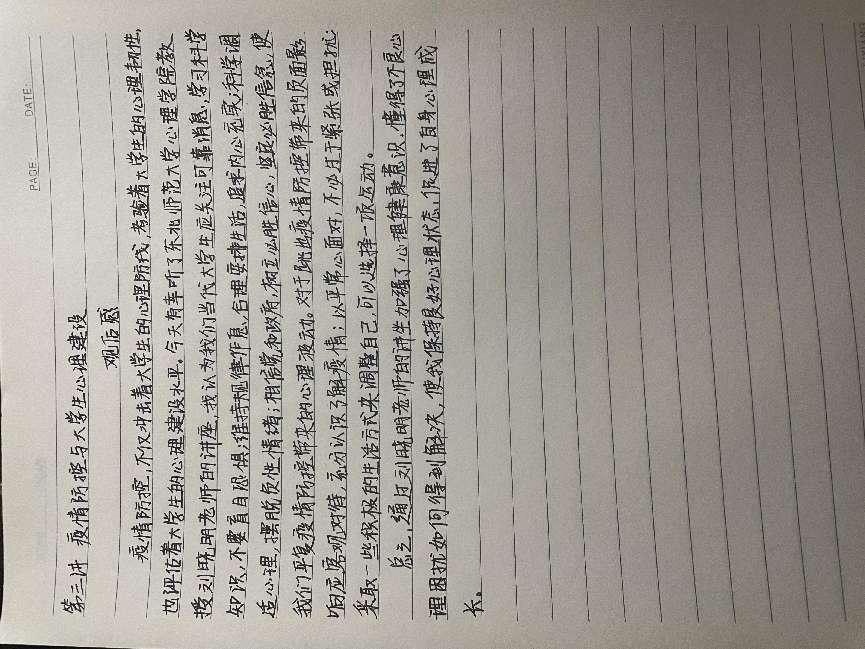 PAGE DATE:
第三讲 疫情防控与大学生心理建设
观后感
疫情防控,不仅冲击着大学生的心理防线,考验着大学生的心理韧性,
也评估着大学生的心理建设水平。今天有幸听了东北师范大学心理学院教
授刘晓明老师的讲座,我认为我们当代大学生应关注可靠消息,学习科学
知识,不要盲目恐惧;维持规律作息,合理安排生活,追求内心充实;科学调
适心理,摆脱负性情绪;相信党和政府,树立必胜信心,坚定必胜信念,使
我们平复疫情防控带来的心理波动。对于此疫情防控带来的负面影
响应客观对待,充分认识了解疫情;以平常心面对,不必过于紧张或担忧
采取一些积极的生活方式来调整自己,可以选择一项运动。
总之,通过刘晓明老师的讲座加强了心理健康意识,懂得了不良心
理困扰如何得到解决,使我保持良好心理状态,促进了自身心理成
长。